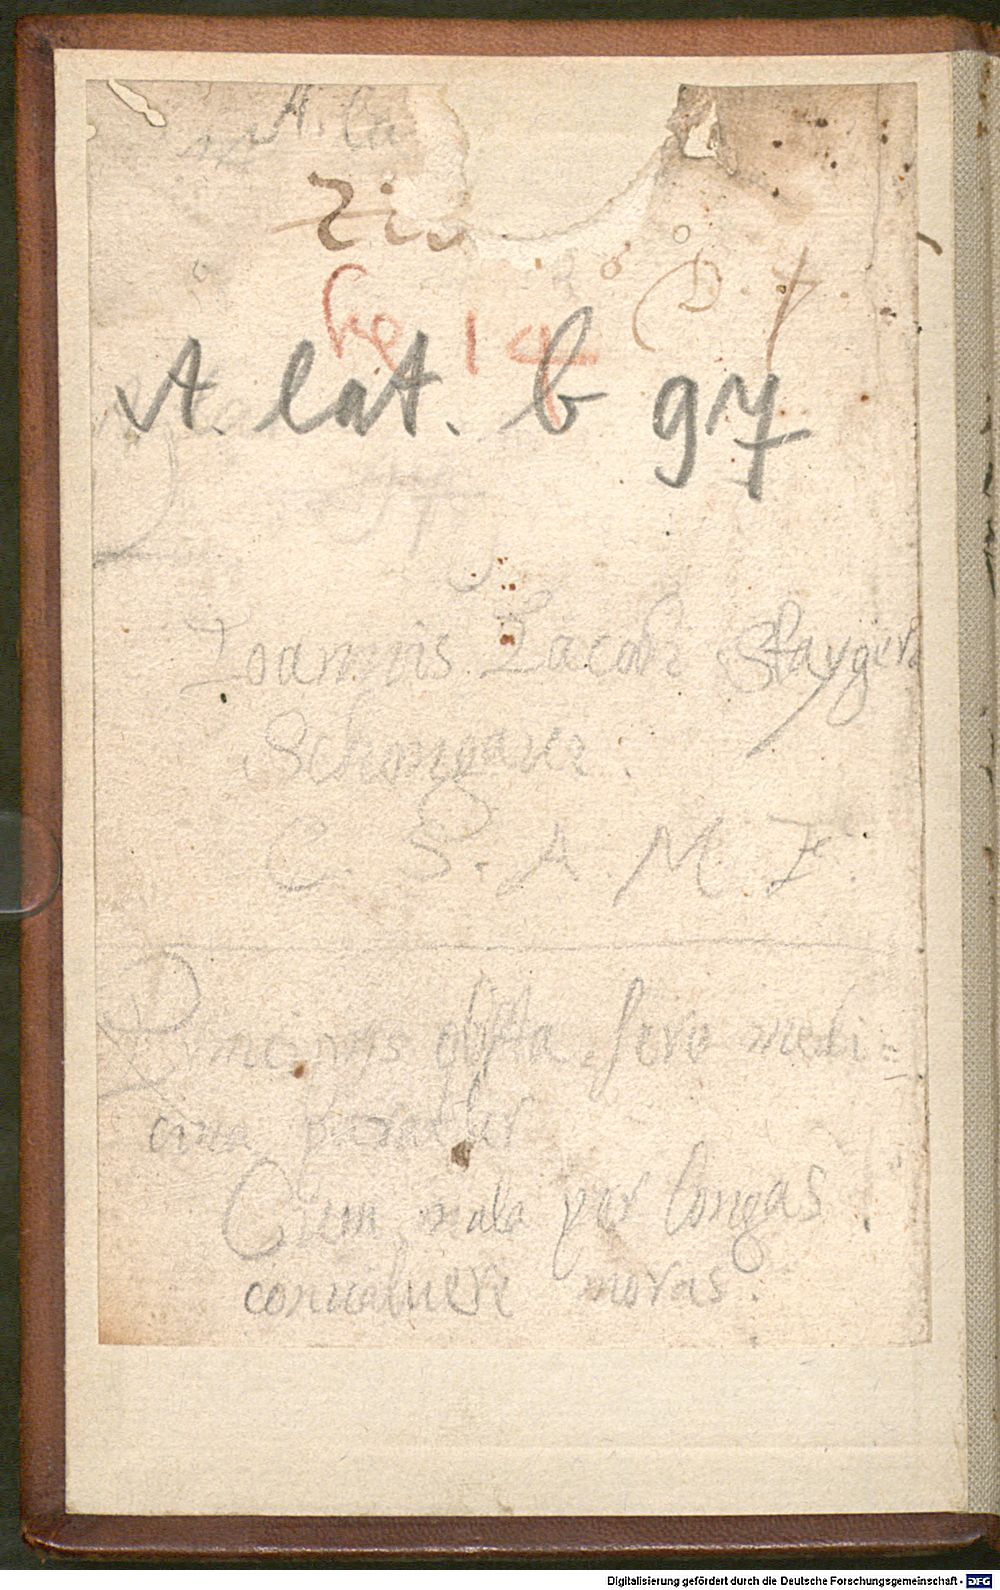 A. la
D. 7.
14
A. lat. b 97
Ioannis Iacobi Staygeri
Schongaui.
C. S. A. M. F.
Principijs obsta, sero medi=
cina paratur
Cum mala per longas
conualuere moras.
Digitalisierung gefördert durch die Deutsche Forschungsgemeinschaft - DFG